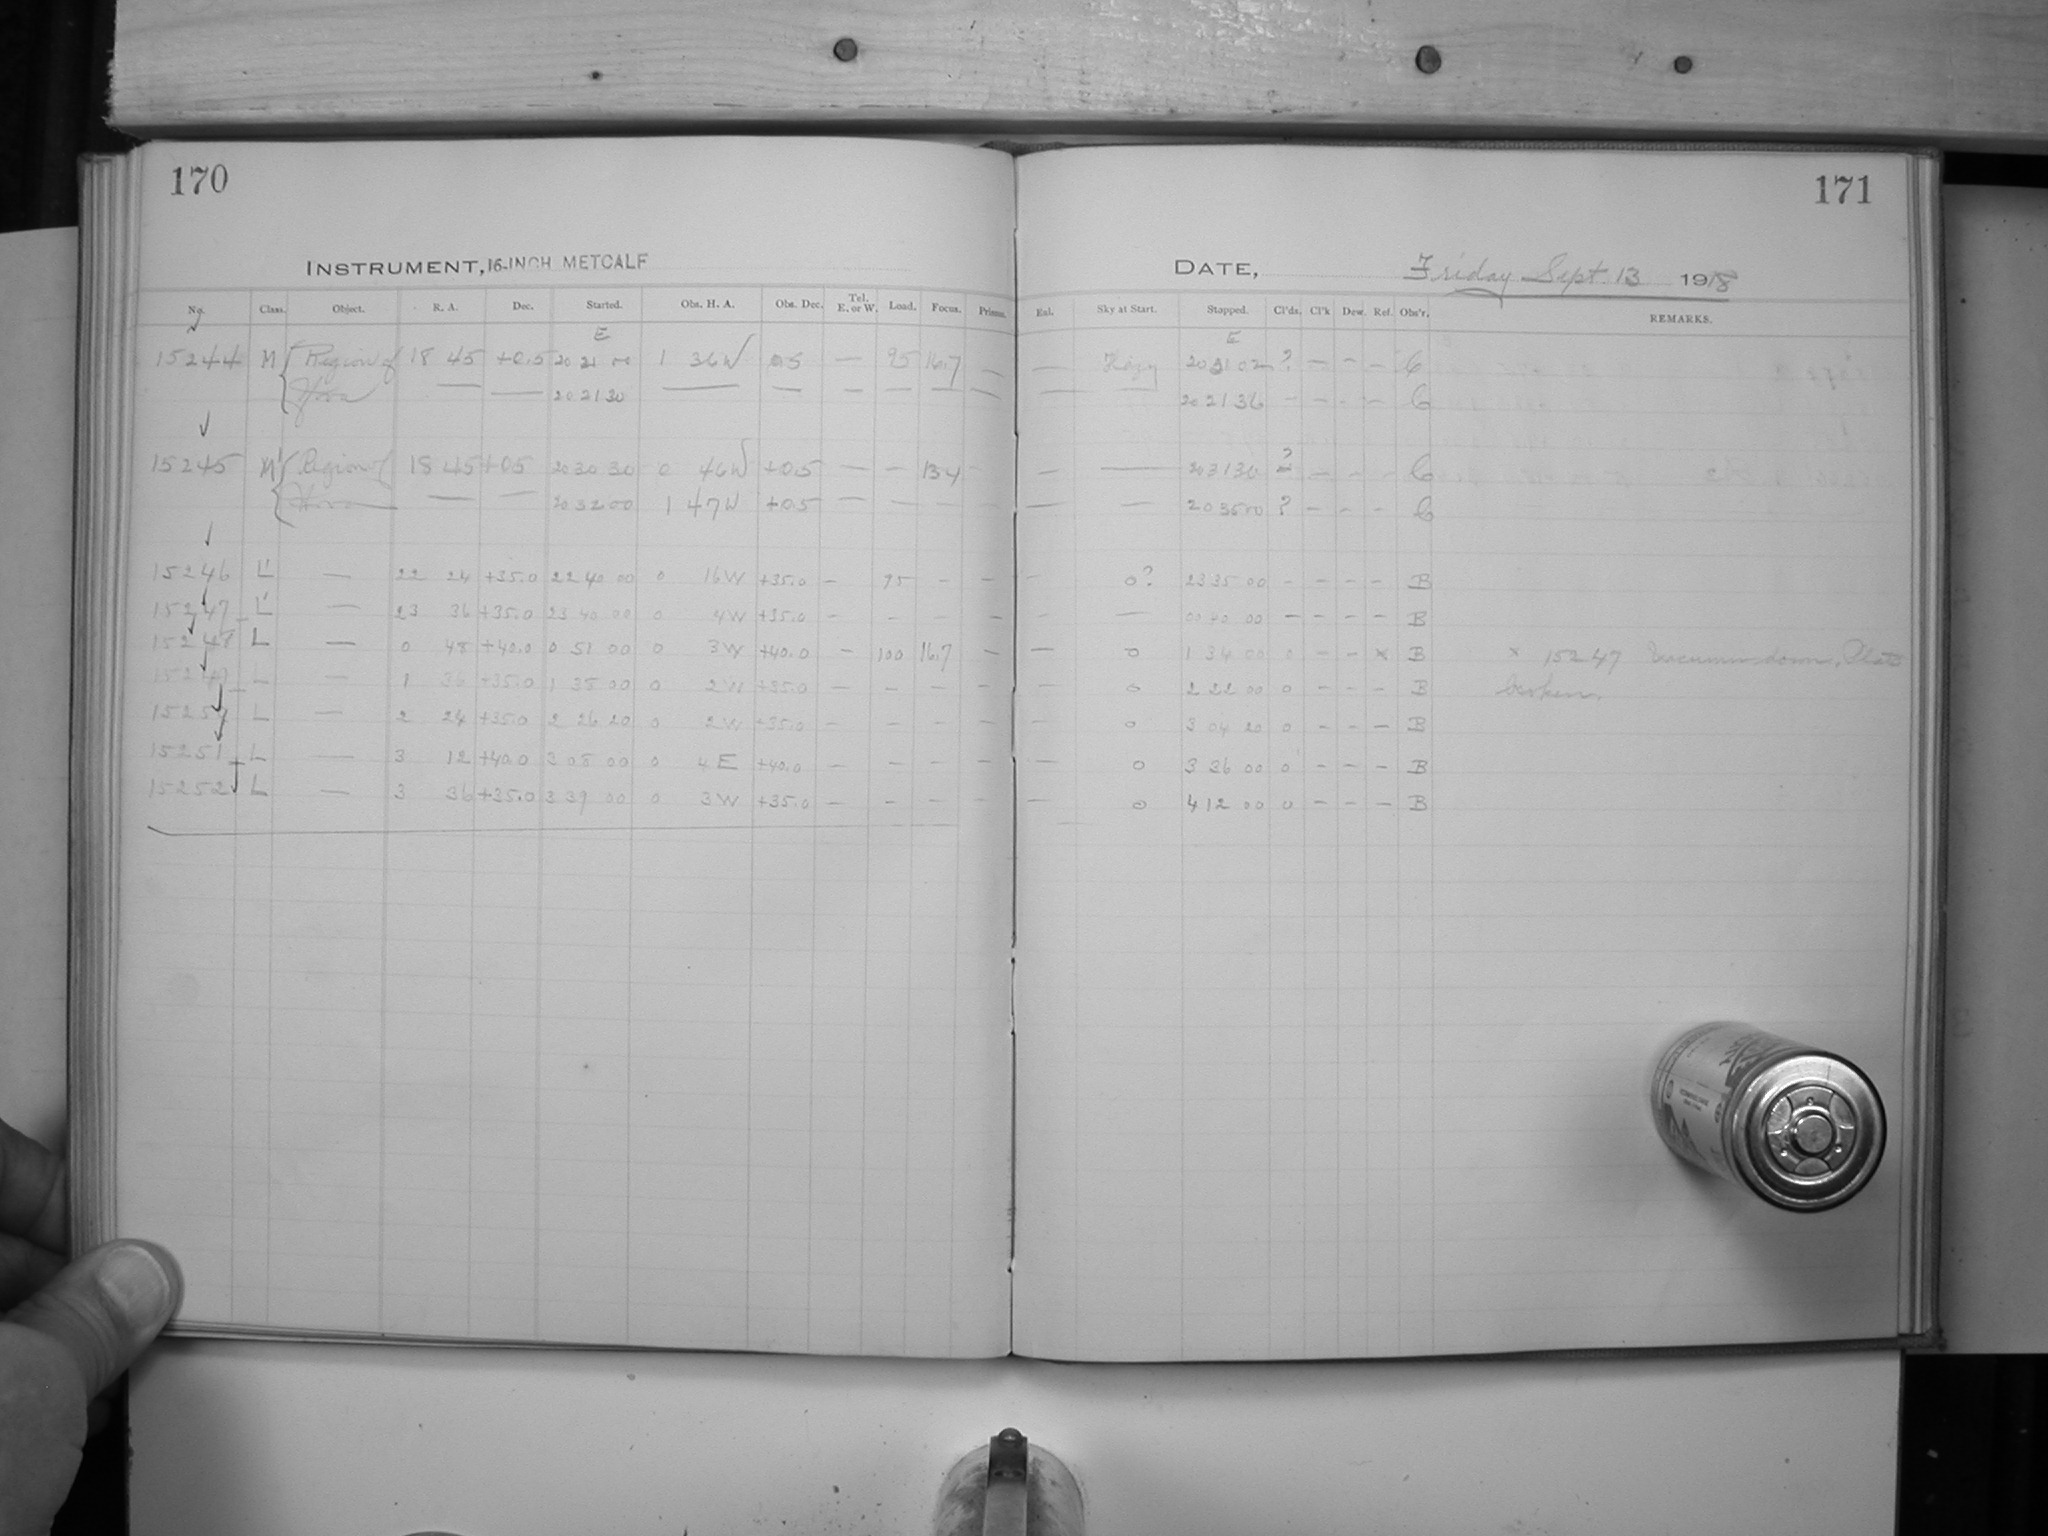 170
171
INSTRUMENT, 16-INCH METCALF
DATE, Friday Sept. 13 1918
No. Class. Object. R. A. Dec. Started. Obs. H. A. Obs. Dec. Tel. E. or W. Load. Focus. Prisms. Eal. Sky at Start. Stopped. Cl'ds. Cl'k Dew. Ref. Obs'r. REMARKS.
E E
15244 M { Region of 18 45 +0.5 20 21 00 1 36W 0.5 — 95 16.7 — — Hazy 20 21 02 ? — — — C
Nova — — 20 21 30 — — — — — — — — 20 21 36 — — — — C
15245 M' { Region of 18 45 +0.5 20 30 30 0 46W +0.5 — — 13.4 — — 20 31 30 ? — — — C
Nova — — 20 32 00 1 47W +0.5 — — — — — — 20 35 00 ? — — — C
15246 L' — 22 24 +35.0 22 40 00 0 16W +35.0 — 95 — — — 0? 23 35 00 — — — — B
15247 L' — 23 36 +35.0 23 40 00 0 4W +35.0 — — — — — — 00 40 00 — — — — B
15248 L — 0 48 +40.0 0 51 00 0 3W +40.0 — 100 16.7 — — 0 1 34 00 0 — — x B x 15247 Vacuum down, Plate
15249 L — 1 36 +35.0 1 35 00 0 2W +35.0 — — — — — 0 2 22 00 0 — — — B broken.
15250 L — 2 24 +35.0 2 26 20 0 2W +35.0 — — — — — 0 3 04 20 0 — — — B
15251 L — 3 12 +40.0 3 08 00 0 4E +40.0 — — — — — 0 3 36 00 0 — — — B
15252 L — 3 36 +35.0 3 39 00 0 3W +35.0 — — — — — 0 4 12 00 0 — — — B